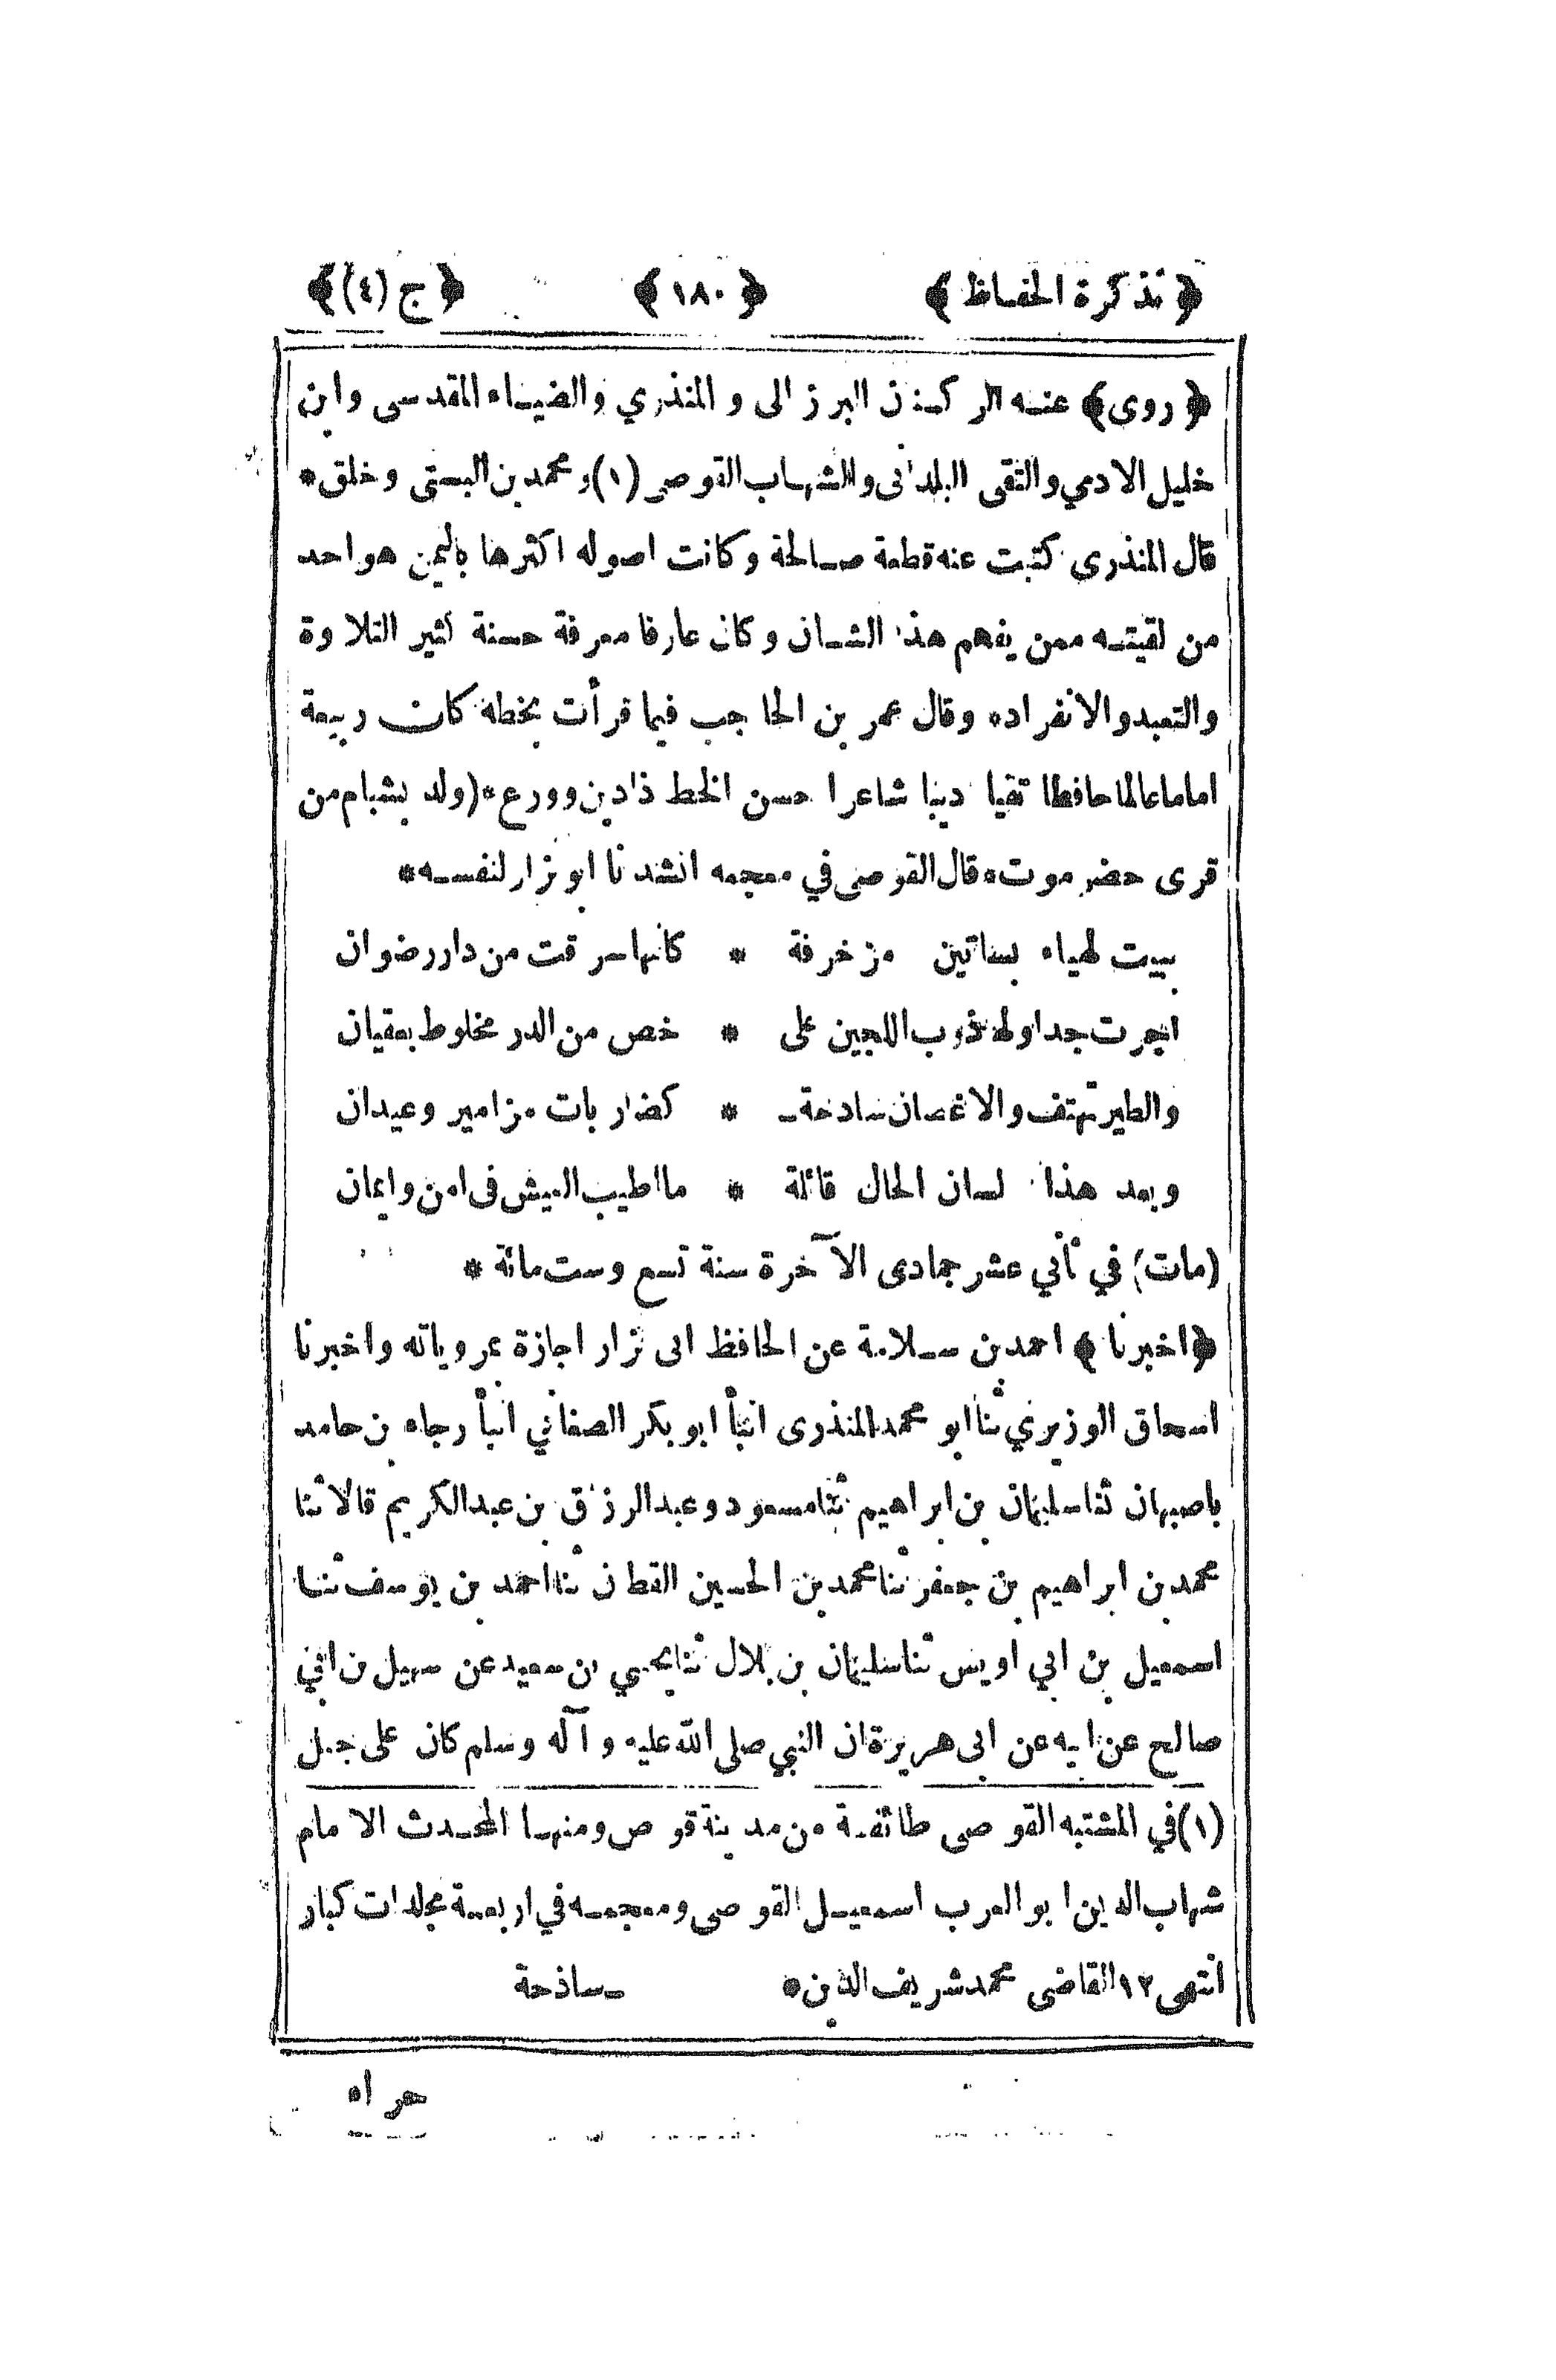 ﴿ تذكرة الحفاظ ﴾ ﴿ ١٨٠ ﴾ ﴿ ج (٤) ﴾
﴿ روى ﴾ عنه الزكيان البرزالى و المنذري والضياء المقدسى وابن
خليل الادمي والتقى البلدانى والشهاب القوصى (١) ومحمد بن البستى وخلق *
قال المنذرى كتبت عنه قطعة صالحة وكانت اصوله اكثرها باليمن هو احد
من لقيته ممن يفهم هذا الشان وكان عارفا معرفة حسنة كثير التلاوة
والتعبد والانفراده وقال عمر بن الحاجب فيما قرأت بخطه كان ربيعة
اماما عالما حافظا ثقيا دينا شاعرا حسن الخط ذا دين وورع * (ولد بشبام من
قرى حضر موت * قال القوصى في معجمه انشدنا ابو نزار لنفسه *
بيت لهياء بساتين مزخرفة * كانها سرقت من دار رضوان
اجرت جداولها ذوب اللجين على * خص من الدر مخلوط بعقيان
والطير تهتف والاغصان سادحة * كضاربات مزامير وعيدان
وبعد هذا لسان الحال قائلة * ما اطيب العيش فى امن وايمان
(مات) في ثاني عشر جمادى الآخرة سنة تسع وست مائة *
﴿ اخبرنا ﴾ احمد بن سلامة عن الحافظ ابى نزار اجازة بمروياته واخبرنا
اسحاق الوزيري ثنا ابو محمد المنذرى انبأ ابو بكر الصغاني انبأ رجاء بن حامد
باصبهان ثنا سليمان بن ابراهيم ثنا مسعود وعبد الرزاق بن عبد الكريم قالا ثنا
محمد بن ابراهيم بن جعفر ثنا محمد بن الحسين القطان ثنا احمد بن يوسف ثنا
اسمعيل بن ابي اويس ثنا سليمان بن بلال ثنا يحيي بن سعيد عن سهيل بن ابي
صالح عن ابيه عن ابى هريرة ان النبي صلى الله عليه وآله وسلم كان على جبل
(١) في المشتبه القوصى طائفة من مدينة قوص ومنها المحدث الامام
شهاب الدين ابو العرب اسمعيل القوصى ومعجمه في اربعة مجلدات كبار
انتهى ١٢ القاضى محمد شريف الدين * ـساذحة
حراء